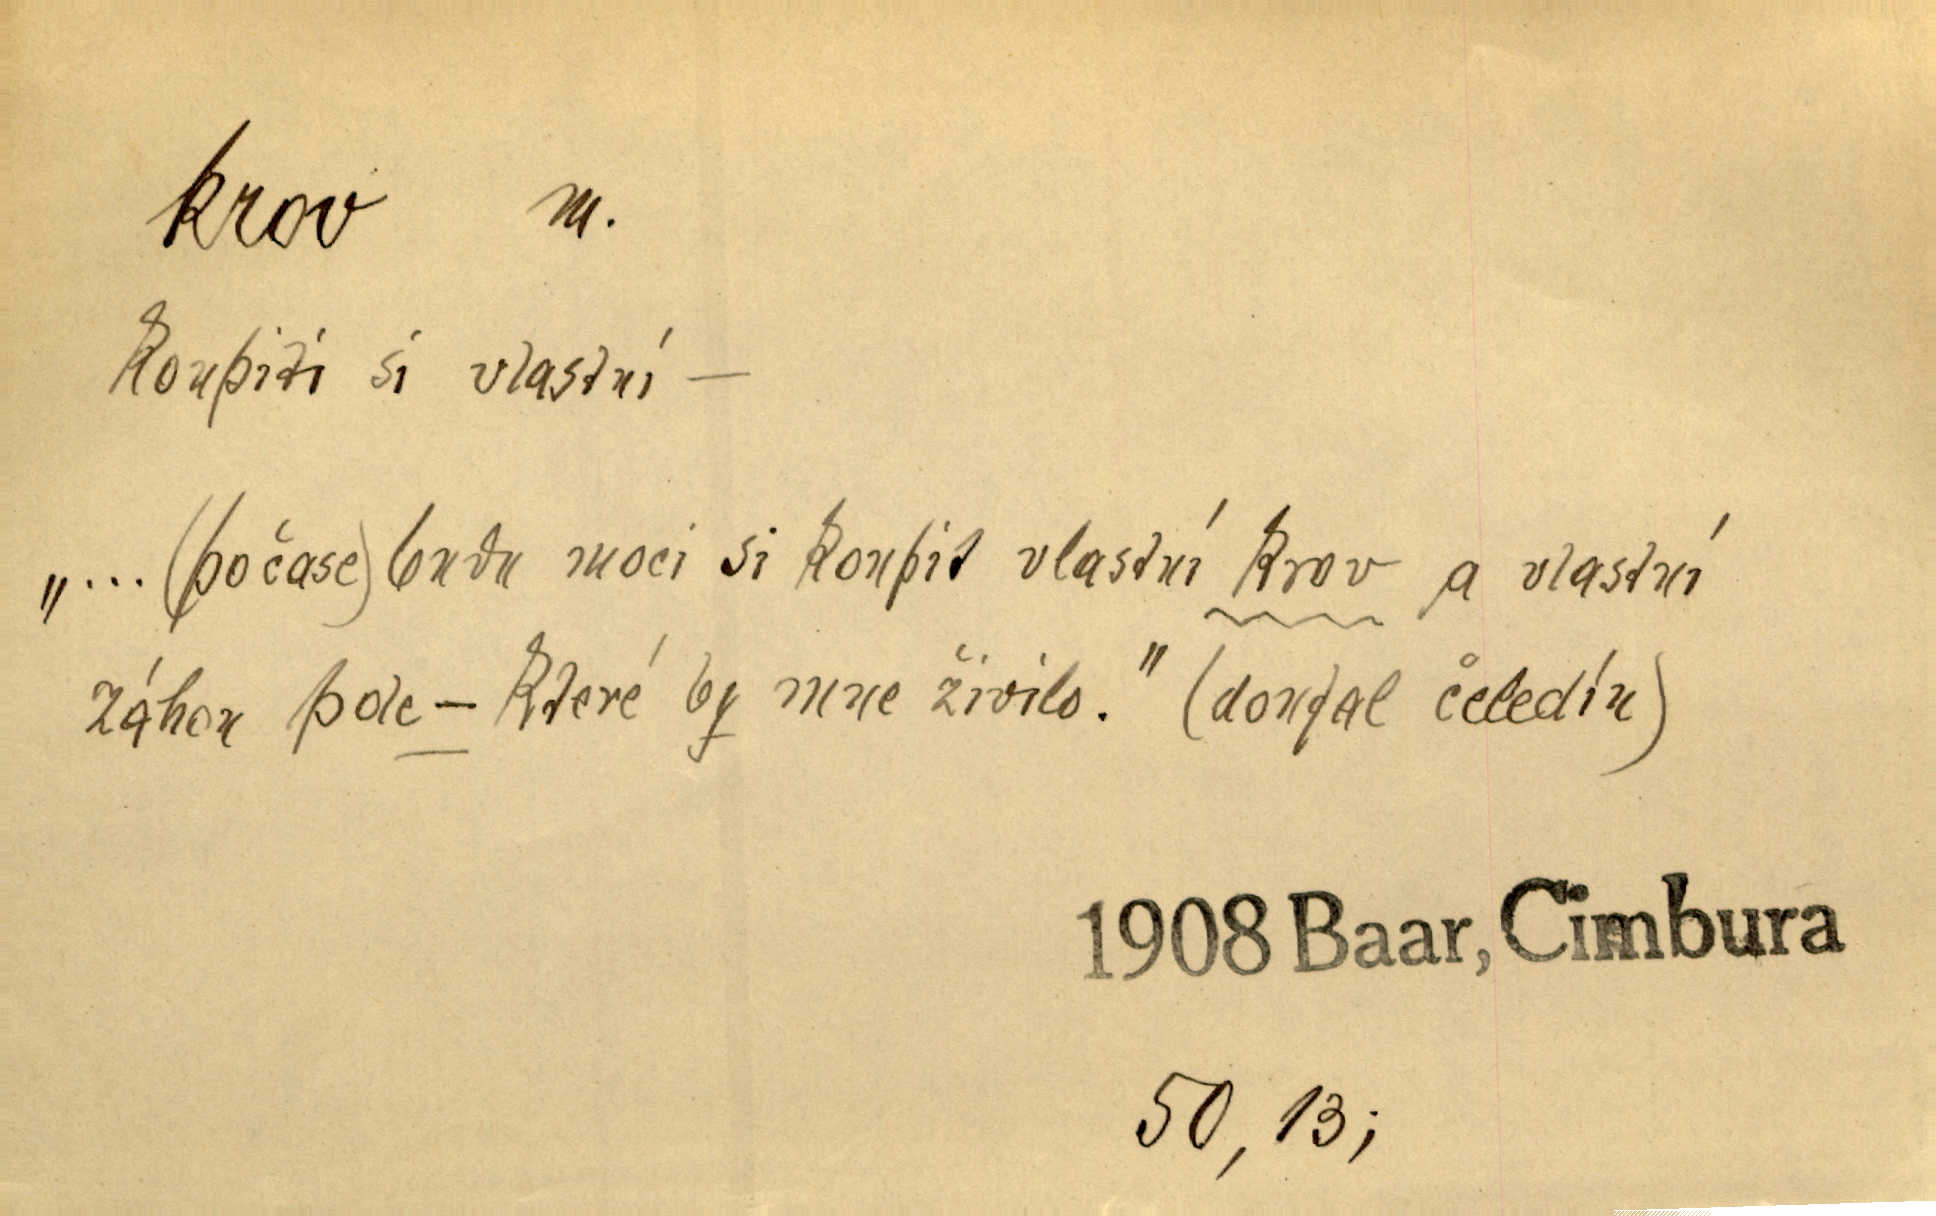 krov m.
koupiti si vlastní —
„... (počase) budu moci si koupit vlastní krov a vlastní
záhon pole — které by mne živilo." (doufal čeledín)
1908 Baar, Cimbura
50, 13;